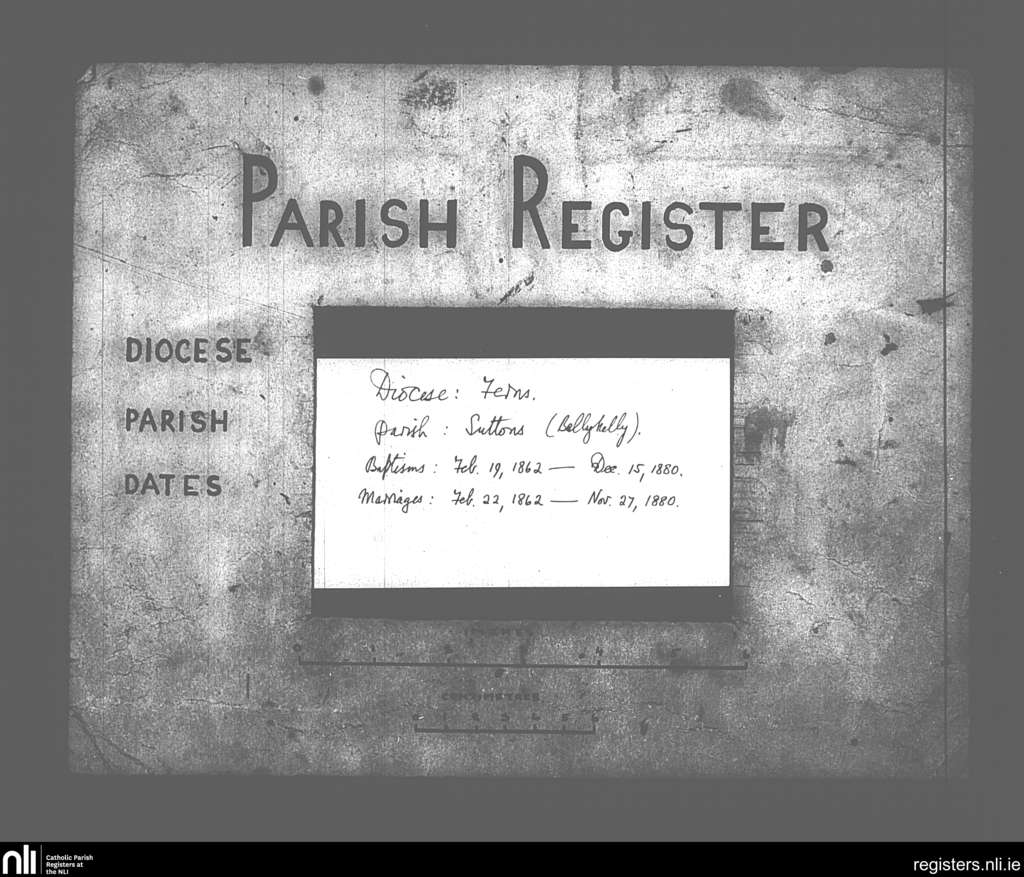 PARISH REGISTER
DIOCESE
PARISH
DATES
Diocese: Ferns.
Parish: Suttons (Ballykelly).
Baptisms: Feb. 19, 1862 — Dec. 15, 1880.
Marriages: Feb. 22, 1862 — Nov. 27, 1880.
CENTIMETRES
nli
Catholic Parish
Registers at
the NLI
registers.nli.ie